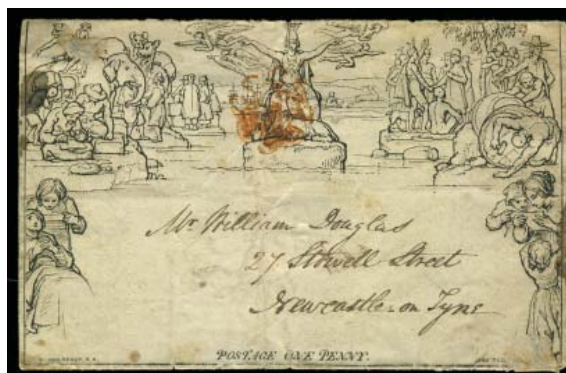 Mr William Douglas
27 Stowell Street
Newcastle on Tyne
POSTAGE ONE PENNY.